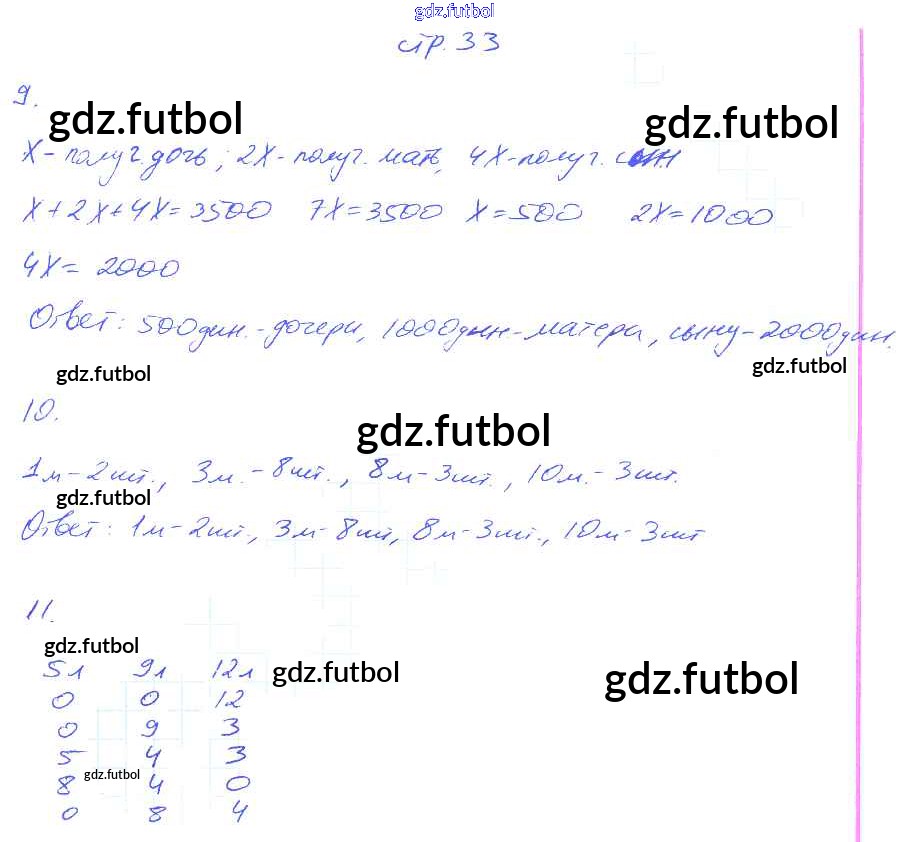 gdz.futbol
стр. 33
9.
gdz.futbol gdz.futbol
X - получ. дочь; 2X - получ. мать, 4X - получ. сын
X + 2X + 4X = 3500 7X = 3500 X = 500 2X = 1000
4X = 2000
Ответ: 500 дин. - дочери, 1000 дин - матери, сыну - 2000 дин.
gdz.futbol gdz.futbol
10.
gdz.futbol
1м - 2 шт., 3м. - 8 шт., 8м - 3 шт., 10м. - 3 шт.
gdz.futbol
Ответ: 1м - 2 шт., 3м - 8 шт, 8м - 3 шт., 10м - 3 шт
11.
gdz.futbol
5л 9л 12л gdz.futbol gdz.futbol
0 0 12
0 9 3
5 4 3
gdz.futbol
8 4 0
0 8 4